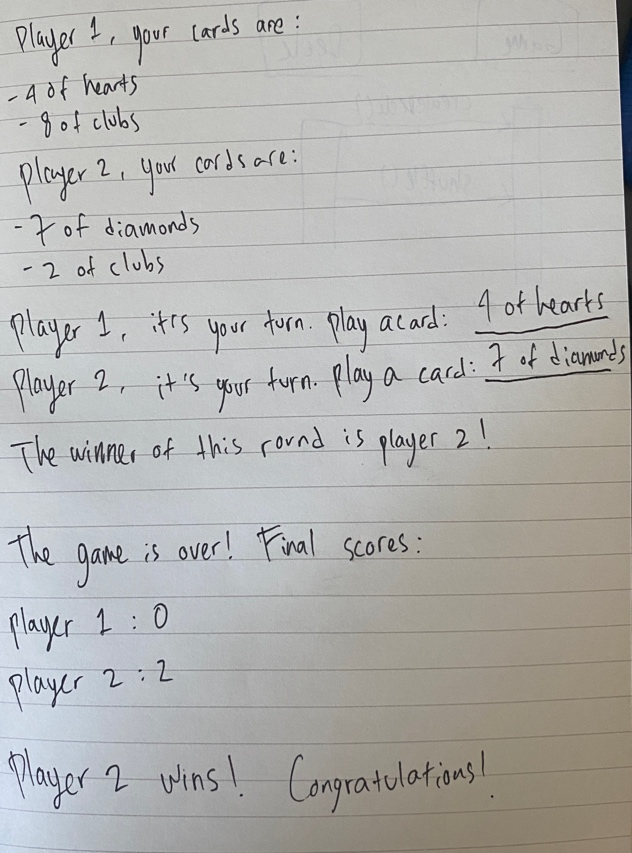 Player 1, your cards are:
- 4 of hearts
- 8 of clubs
Player 2, your cards are:
- 7 of diamonds
- 2 of clubs
Player 1, it's your turn. Play a card: 4 of hearts
Player 2, it's your turn. Play a card: 7 of diamonds
The winner of this round is player 2!
The game is over! Final scores:
player 1 : 0
player 2 : 2
Player 2 wins! Congratulations!